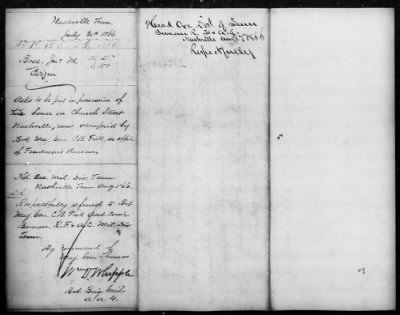 Nashville Tenn
July 20th 1866
Bass, Jno. M.
Citizen
Asks to be put in possession of
his house on Church Street
Nashville, now occupied by
Bvt. Maj. Genl. C.B. Fisk, as office
of Freedmen's Bureau
Hd. Qrs. Mil. Div. Tenn
Nashville Tenn Aug 66
Respectfully referred to Bvt
Maj. Genl. C.B. Fisk
Bureau R.F. & A.L.
Tenn
By command of
Maj. Genl Thomas
Wm D. Whipple
Bvt. Brig. Genl
A.A.G.
Head Qrs. Dist. of Tenn
Bureau R. F. & A. L.
Nashville Aug 1866
Respectfully